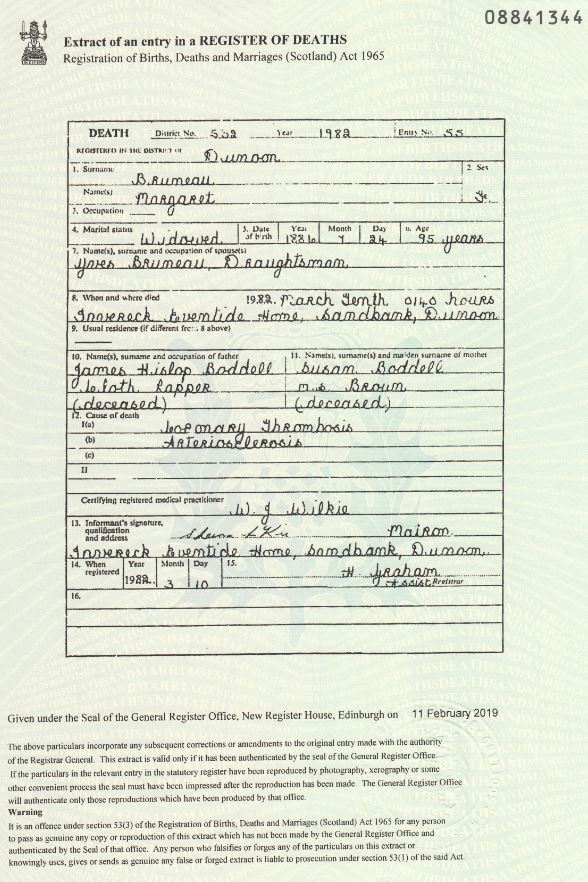 08841344
Extract of an entry in a REGISTER OF DEATHS
Registration of Births, Deaths and Marriages (Scotland) Act 1965
DEATH District No. 532 Year 1982 Entry No. 55
REGISTERED IN THE DISTRICT OF Dunoon
1. Surname Bruneau 2. Sex
Name(s) Margaret
3. Occupation
4. Marital status Widowed 5. Date of birth Year 1886 Month 7 Day 24 6. Age 95 years
7. Name(s), surname and occupation of spouse(s)
Yves Bruneau, Draughtsman
8. When and where died 1982. March Tenth 0140 hours
Invereck Eventide Home, Sandbank, Dunoon
9. Usual residence (if different from 8 above)
10. Name(s), surname and occupation of father 11. Name(s), surname(s) and maiden surname of mother
James Hislop Boddell Susan Boddell
Cloth Lapper m.s. Brown
(deceased) (deceased)
12. Cause of death
I(a) Coronary Thrombosis
(b) Arteriosclerosis
(c)
II
Certifying registered medical practitioner W. J. Wilkie
13. Informant's signature, qualification and address Matron
Invereck Eventide Home, Sandbank, Dunoon
14. When registered Year 1982. Month 3 Day 10 15. H. Graham
Assist Registrar
16.
Given under the Seal of the General Register Office, New Register House, Edinburgh on 11 February 2019
The above particulars incorporate any subsequent corrections or amendments to the original entry made with the authority
of the Registrar General. This extract is valid only if it has been authenticated by the seal of the General Register Office.
If the particulars in the relevant entry in the statutory register have been reproduced by photography, xerography or some
other convenient process the seal must have been impressed after the reproduction has been made. The General Register Office
will authenticate only those reproductions which have been produced by that office.
Warning
It is an offence under section 53(3) of the Registration of Births, Deaths and Marriages (Scotland) Act 1965 for any person
to pass as genuine any copy or reproduction of this extract which has not been made by the General Register Office and
authenticated by the Seal of that office. Any person who falsifies or forges any of the particulars on this extract or
knowingly uses, gives or sends as genuine any false or forged extract is liable to prosecution under section 53(1) of the said Act.